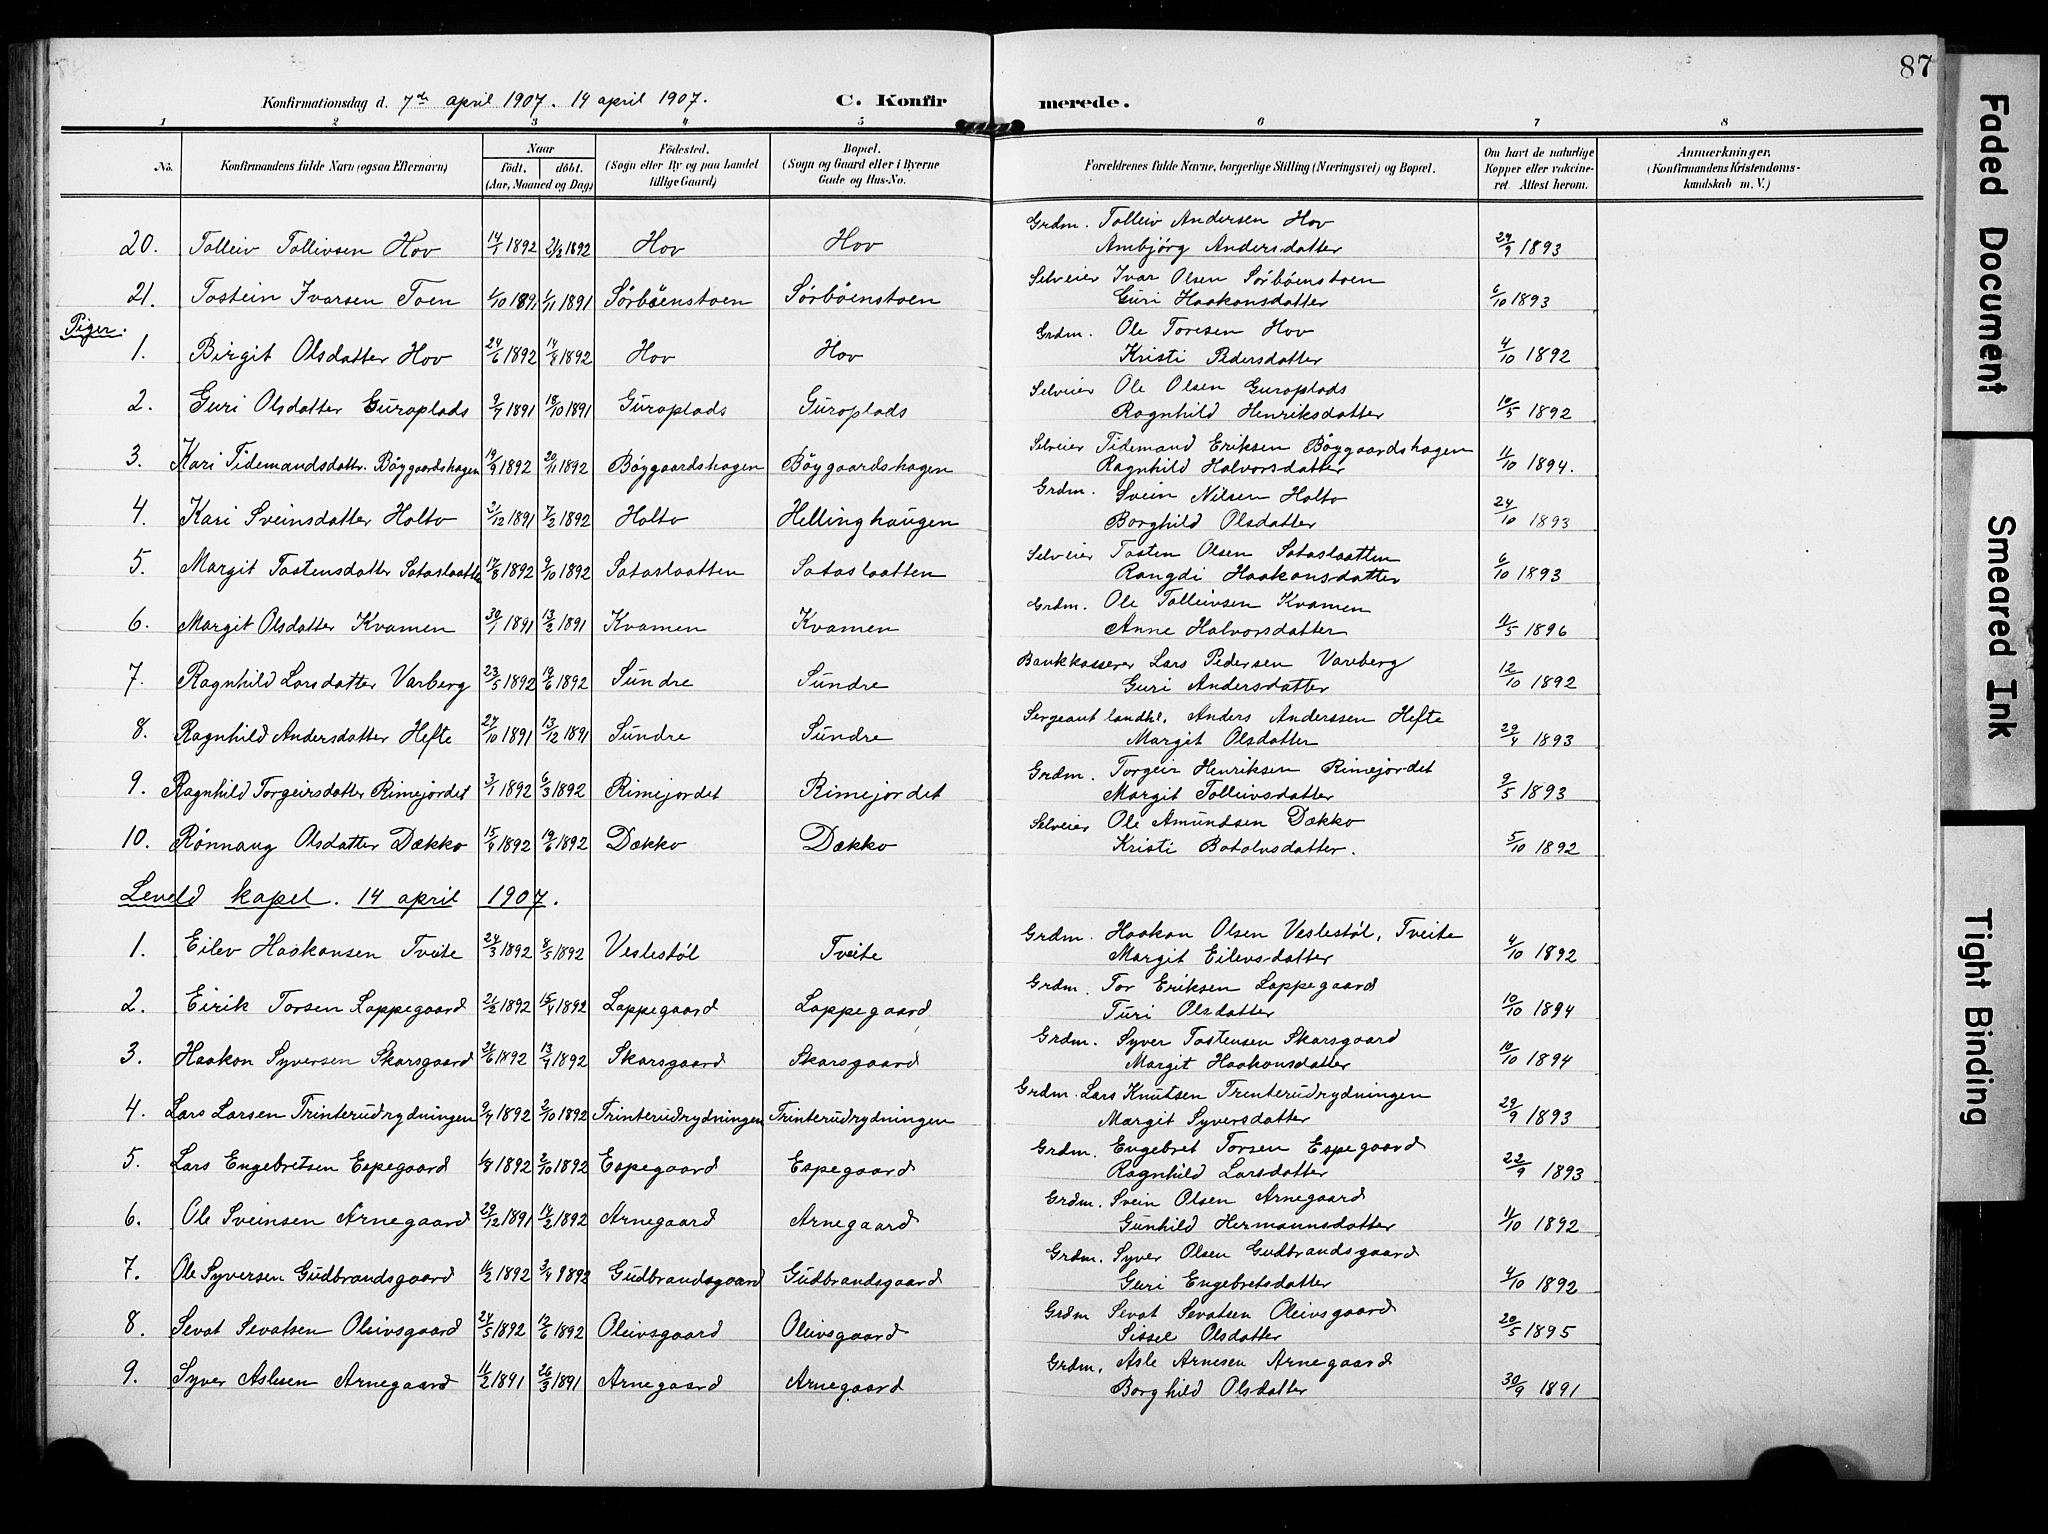 87
Konfirmationsdag d. 7de april 1907. 14 april 1907. C. Konfirmerede.
1 2 3 4 5 6 7 8
No. Konfirmandens fulde Navn (ogsaa Efternavn) Naar født. døbt. (Aar, Maaned og Dag) Fødested. (Sogn eller By og paa Landet tillige Gaard) Bopæl. (Sogn og Gaard eller i Byerne Gade og Hus-No. Forældrenes fulde Navne, borgerlige Stilling (Næringsvei) og Bopæl. Om havt de naturlige Kopper eller vakcineret. Attest herom. Anmærkninger. (Konfirmandens Kristendomskundskab m. V.)
20. Tolleiv Tollivsen Hov 14/1 1892 21/2 1892 Hov Hov Grdm. Tolleiv Andersen Hov
Ambjørg Andersdatter 24/9 1893
21. Tostein Ivarsen Toen 1/10 1891 1/11 1891 Sørbøenstoen Sørbøenstoen Selveier Ivar Olsen Sørbøenstoen
Guri Haakonsdatter 6/10 1893
Piger.
1. Birgit Olsdatter Hov 24/6 1892 14/8 1892 Hov Hov Grdm. Ole Toresen Hov
Kristi Pedersdatter 4/10 1892
2. Guri Olsdatter Guroplads 9/9 1891 18/10 1891 Guroplads Guroplads Selveier Ole Olsen Guroplads
Ragnhild Henriksdatter 10/5 1892
3. Kari Tidemandsdattr. Bøygaardshagen 19/9 1892 20/11 1892 Bøygaardshagen Bøygaardshagen Selveier Tidemand Eriksen Bøygaardshagen
Ragnhild Halvorsdatter 11/10 1894.
4. Kari Sveinsdatter Holto 3/12 1891 7/2 1892 Holto Hellinghaugen Grdm. Svein Nilsen Holto
Borghild Olsdatter 24/10 1893
5. Margit Tostensdatter Sataslaatten 17/8 1892 9/10 1892 Sataslaatten Sataslaatten Selveier Tosten Olsen Sataslaatten
Rangdi Haakonsdatter 6/10 1893
6. Margit Olsdatter Kvamen 30/1 1891 13/2 1891 Kvamen Kvamen Grdm. Ole Tolleivsen Kvamen
Anne Halvorsdatter 11/5 1896
7. Ragnhild Larsdatter Varberg 23/5 1892 19/6 1892 Sundre Sundre Bankkasserer Lars Pedersen Vareberg
Guri Andersdatter 12/10 1892
8. Ragnhild Andersdatter Hefte 27/10 1891 13/12 1891 Sundre Sundre Sergeant landhl. Anders Anderssen Hefte
Margit Olsdatter 29/4 1893
9. Ragnhild Torgeirsdatter Rimejordet 3/1 1892 6/3 1892 Rimejordet Rimejordet Grdm. Torgeir Henriksen Rimejordet
Margit Tolleivsdatter 9/5 1893
10. Rønnaug Olsdatter Dækko 15/4 1892 19/6 1892 Dækko Dækko Selveier Ole Amundsen Dækko
Kristi Botolvsdatter. 5/10 1892
Leveld kapel. 14 april 1907.
1. Eilev Haakonsen Tveite 24/3 1892 8/5 1892 Veslestøl Tveite Grdm. Haakon Olsen Veslestøl, Tveite
Margit Eilevsdatter 4/10 1892
2. Eirik Torsen Loppegaard 21/2 1892 15/4 1892 Loppegaard Loppegaard Grdm. Tor Eriksen Loppegaard
Turi Olsdatter 10/10 1894
3. Haakon Syversen Skarsgaard 21/6 1892 13/7 1892 Skarsgaard Skarsgaard Grdm. Syver Tostensen Skarsgaard
Margit Haakonsdatter 10/10 1894
4. Lars Larsen Trinterudrydningen 9/7 1892 2/10 1892 Trinterudrydningen Trinterudrydningen Grdm. Lars Knutsen Trinterudrydningen
Margit Syversdatter 29/9 1893
5. Lars Engebretsen Espegaard 1/8 1892 2/10 1892 Espegaard Espegaard Grdm. Engebret Torsen Espegaard
Ragnhild Larsdatter 22/9 1893
6. Ole Sveinsen Arnegaard 29/12 1891 14/2 1892 Arnegaard Arnegaard Grdm. Svein Olsen Arnegaard
Gunhild Hermannsdatter 11/10 1892
7. Ole Syversen Gudbrandsgaard 11/2 1892 3/4 1892 Gudbrandsgaard Gudbrandsgaard Grdm. Syver Olsen Gudbrandsgaard
Guri Engebretsdatter 4/10 1892
8. Sevat Sevatsen Oleivsgaard 24/5 1892 12/6 1892 Oleivsgaard Oleivsgaard Grdm Sevat Sevatsen Oleivsgaard
Sissel Olsdatter 20/5 1895
9. Syver Aslesen Arnegaard 11/2 1891 26/3 1891 Arnegaard Arnegaard Grdm. Asle Arnesen Arnegaard
Borghild Olsdatter 30/9 1891
Faded Document
Smeared Ink
Tight Binding